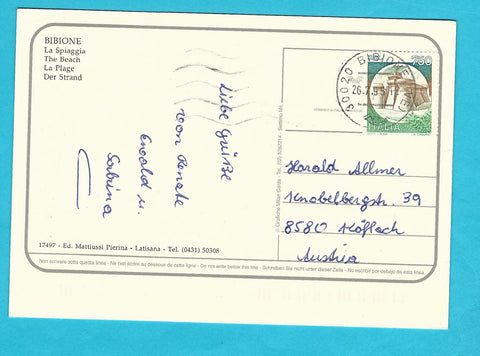 BIBIONE
La Spiaggia
The Beach
La Plage
Der Strand
Liebe Grüße
von Renate
Ewald u.
Sabrina
750
30020 BIBIONE (VE)
ITALIA
Harald Allmer
Knobelbergstr. 39
8580 Köflach
Austria
17497 - Ed. Mattiussi Pierina - Latisana - Tel. (0431) 50308
Non scrivere sotto questa linea - Ne rien écrire au dessous de cette ligne - Do not write below this line - Schreiben Sie nicht unter dieser Zeile - No escribir por debajo de esta linea